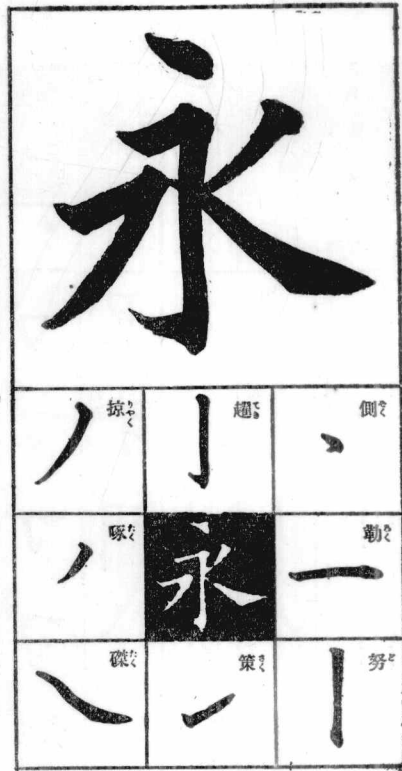 永
側 そく
勒 ろく
努 ど
趯 てき
永
策 さく
掠 りやく
啄 たく
磔 たく